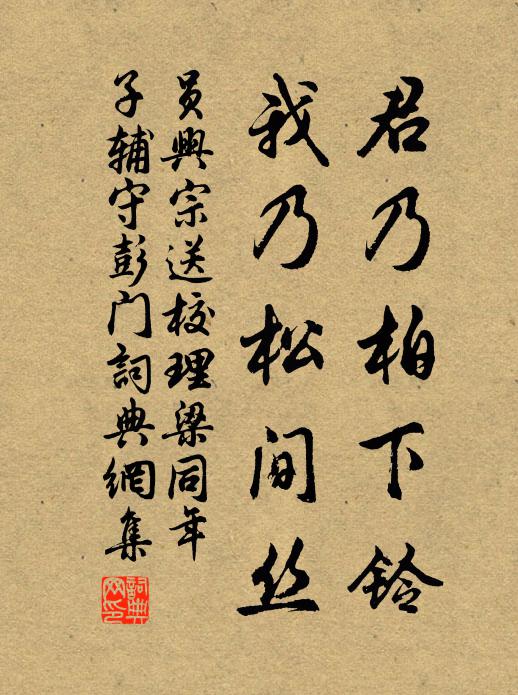 君乃柏下铃
我乃松间丝
员興宗送校理梁同年
子辅守彭门詞典網集
詞典网印